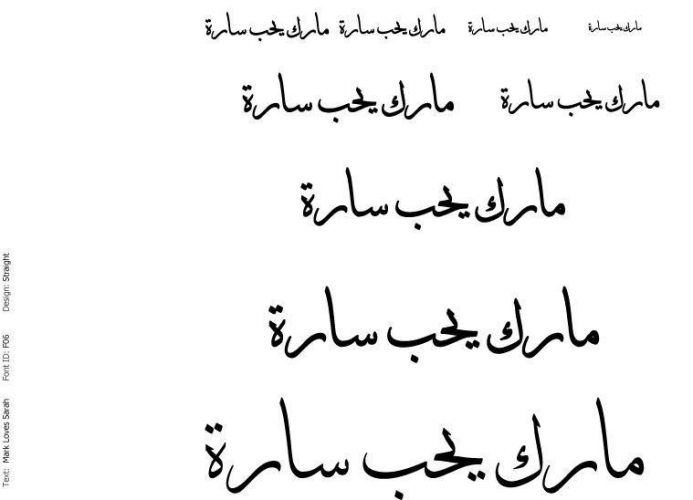 مارك يحب سارة مارك يحب سارة مارك يحب سارة مارك يحب سارة
مارك يحب سارة مارك يحب سارة
مارك يحب سارة
مارك يحب سارة
مارك يحب سارة
Text: Mark Loves Sarah Font ID: F06 Design: Straight